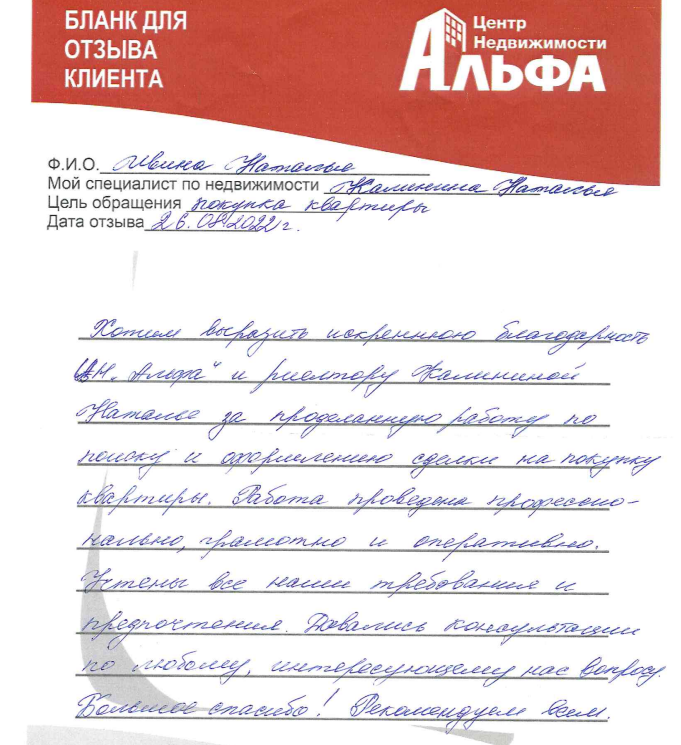 БЛАНК ДЛЯ
ОТЗЫВА
КЛИЕНТА
Центр
Недвижимости
АЛЬФА
Ф.И.О. Ивина Наталья
Мой специалист по недвижимости Калинина Наталья
Цель обращения покупка квартиры
Дата отзыва 26.08.2022 г.
Хотим выразить искреннюю благодарность
ЦН „Альфа“ и риелтору Калининой
Наталье за проделанную работу по
поиску и оформлению сделки на покупку
квартиры. Работа проведена профессио-
нально, грамотно и оперативно.
Учтены все наши требования и
предпочтения. Давались консультации
по любому, интересующему нас вопросу.
Большое спасибо! Рекомендуем всем.